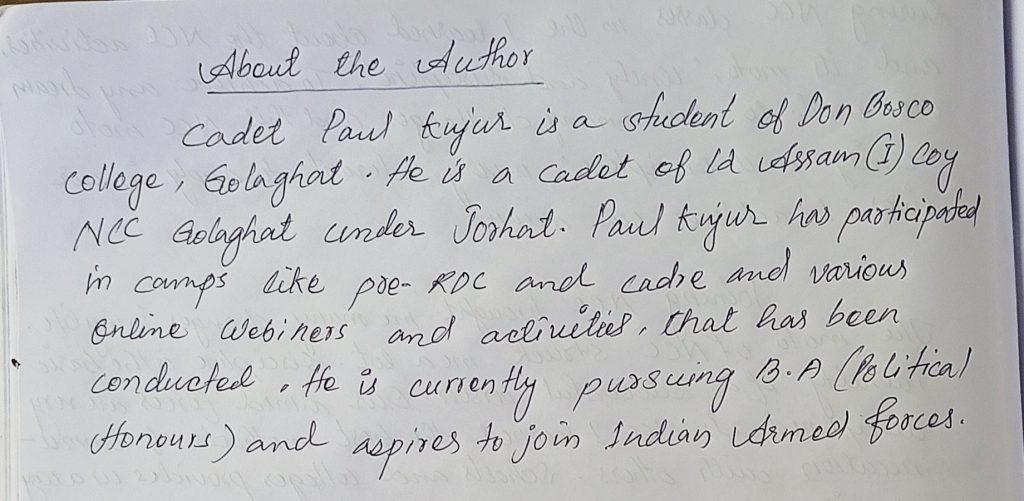 About the Author
Cadet Paul Kujur is a student of Don Bosco
College, Golaghat. He is a cadet of 1d Assam (I) Coy
NCC Golaghat under Jorhat. Paul Kujur has participated
in camps like pre-RDC and cadre and various
online webiners and activities, that has been
conducted. He is currently pursuing B.A (Political
Honours) and aspires to join Indian Armed forces.